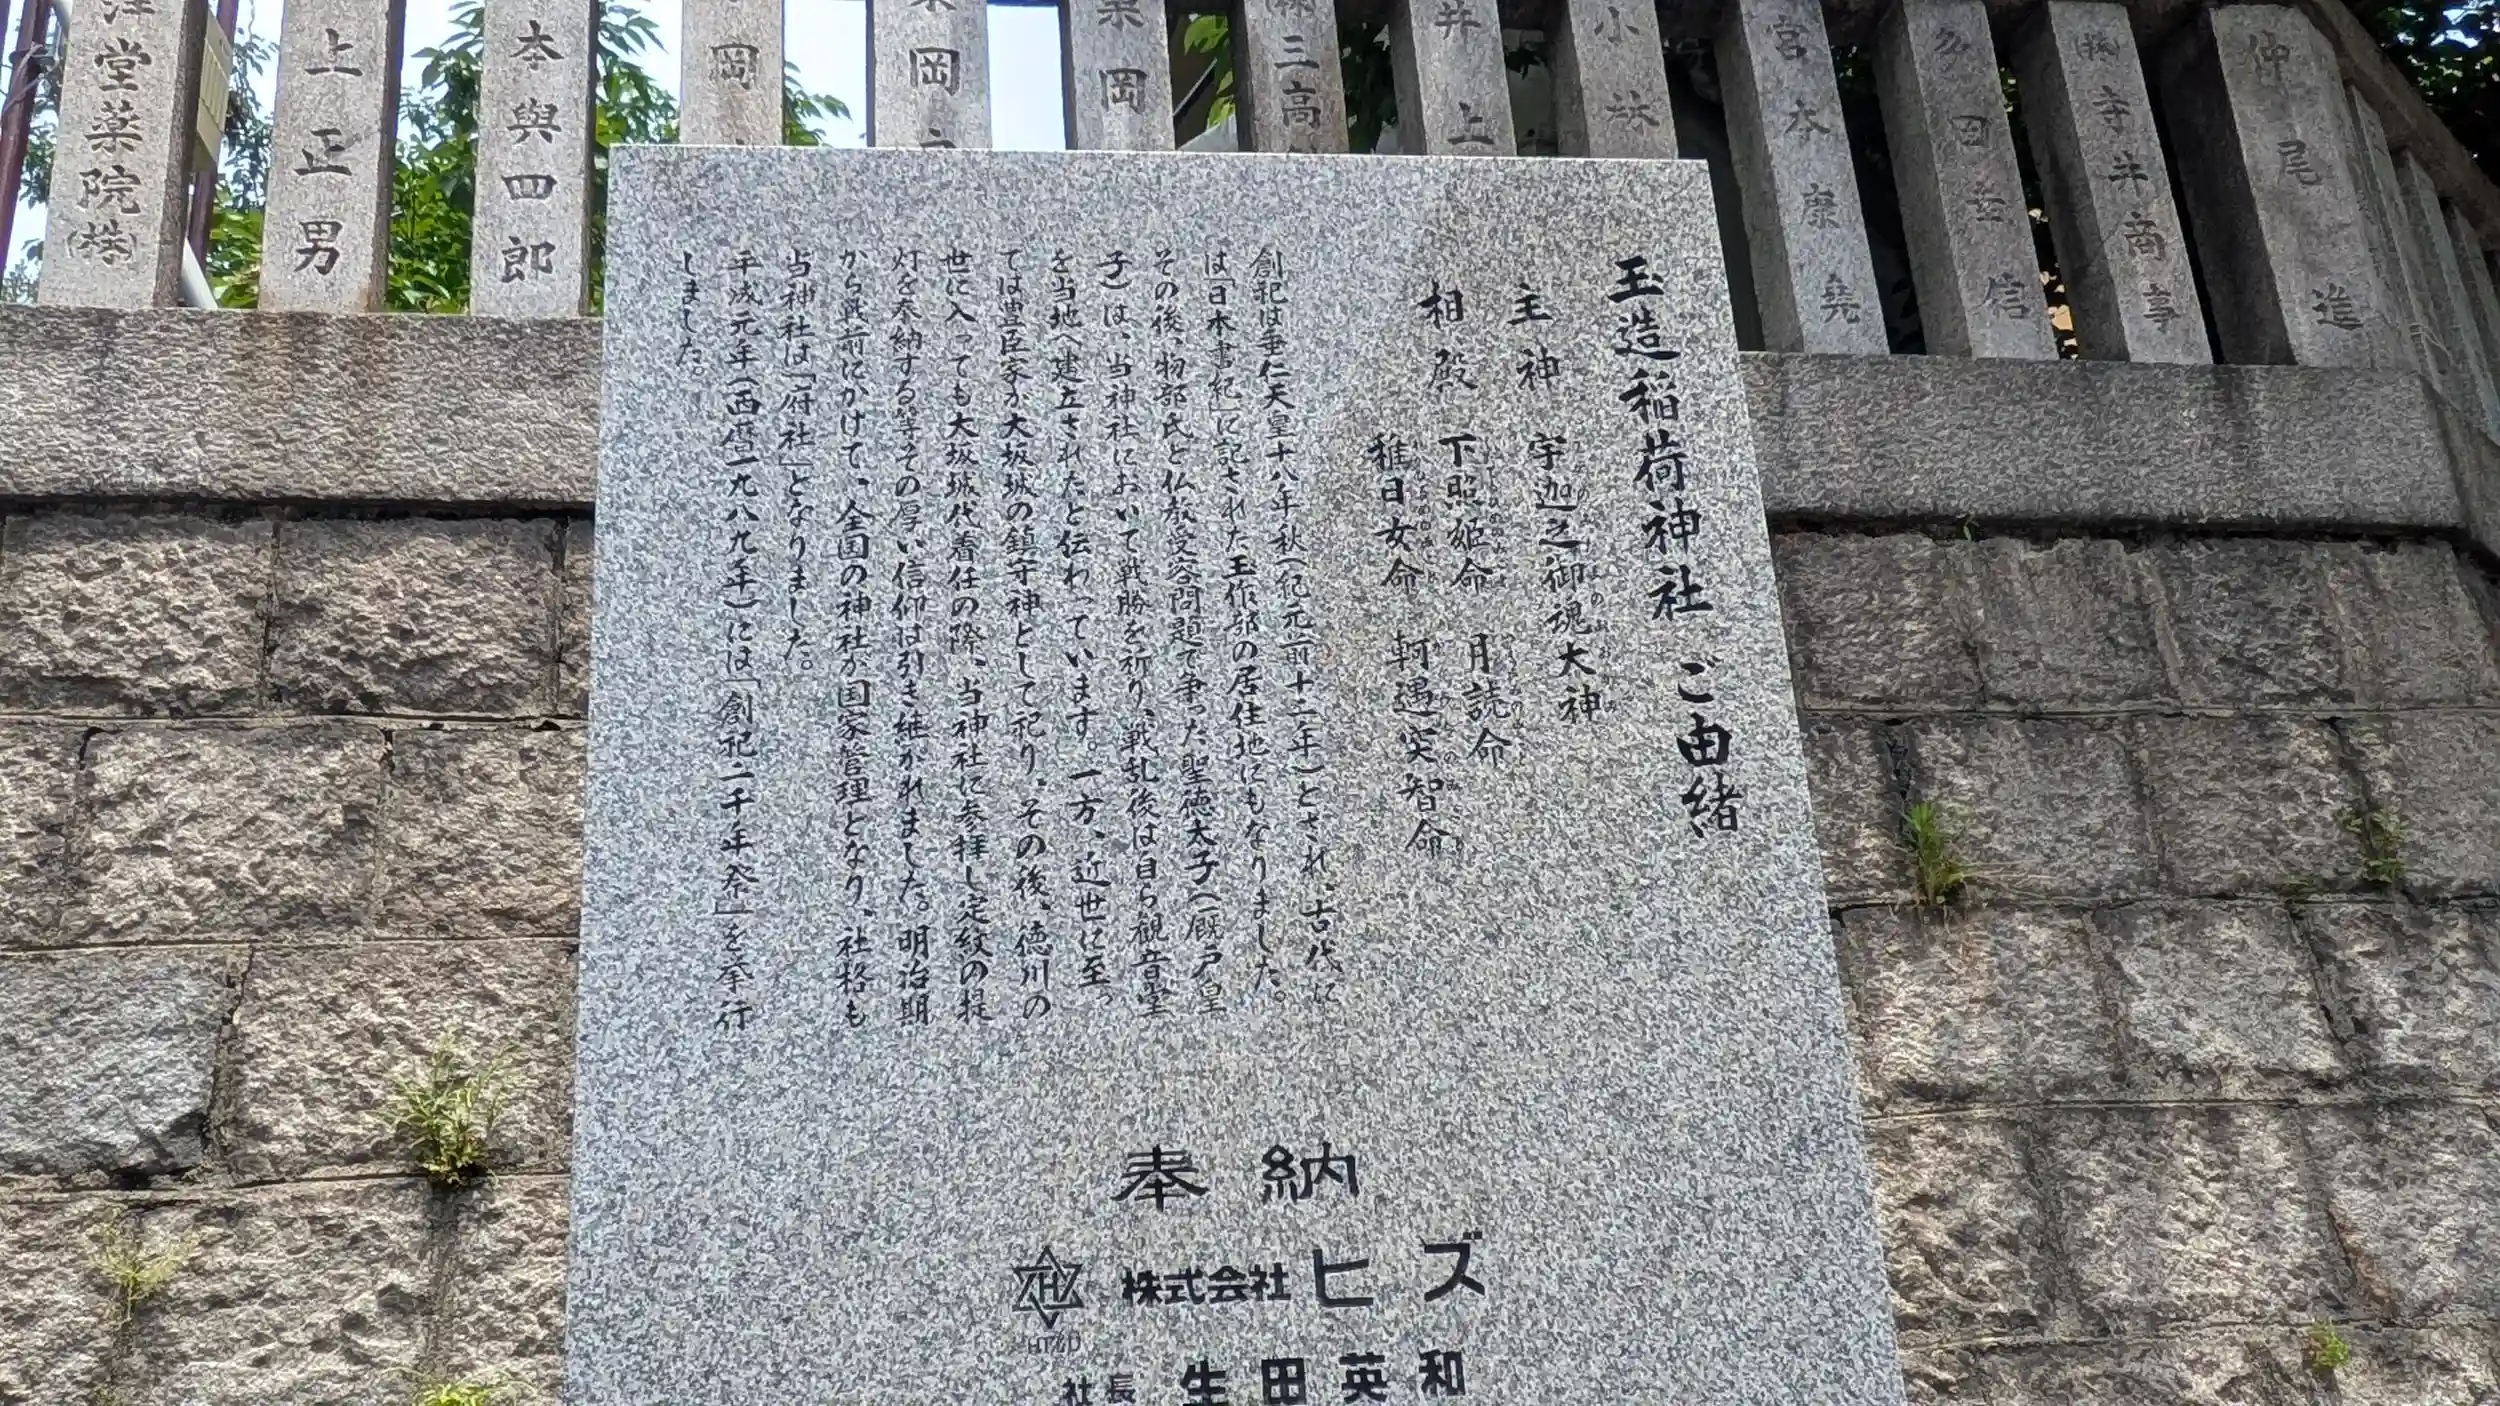 玉造稲荷神社 ご由緒
主神 宇迦之御魂大神
相殿 下照姫命 月読命
稚日女命 軻遇突智命
創祀は垂仁天皇十八年秋（紀元前十二年）とされ、古代に
は「日本書紀」に記された玉作部の居住地にもなりました。
その後、物部氏と仏教受容問題で争った聖徳太子（厩戸皇
子）は、当神社において戦勝を祈り、戦乱後は自ら観音堂
を当地へ建立されたと伝わっています。一方、近世に至っ
ては豊臣家が大坂城の鎮守神として祀り、その後、徳川の
世に入っても大坂城代着任の際、当神社に参拝し定紋の提
灯を奉納する等その厚い信仰は引き継がれました。明治期
から戦前にかけて、全国の神社が国家管理となり、社格も
当神社は「府社」となりました。
平成元年（西暦一九八九年）には「創祀二千年祭」を挙行
しました。
奉納
株式会社 ヒズ
社長 生田英和
仲尾進
㈱寺井商事
多田幸信
宮本康尭
小林
井上
㈱三高
岡
岡
岡
本與四郎
上正男
堂薬院㈱